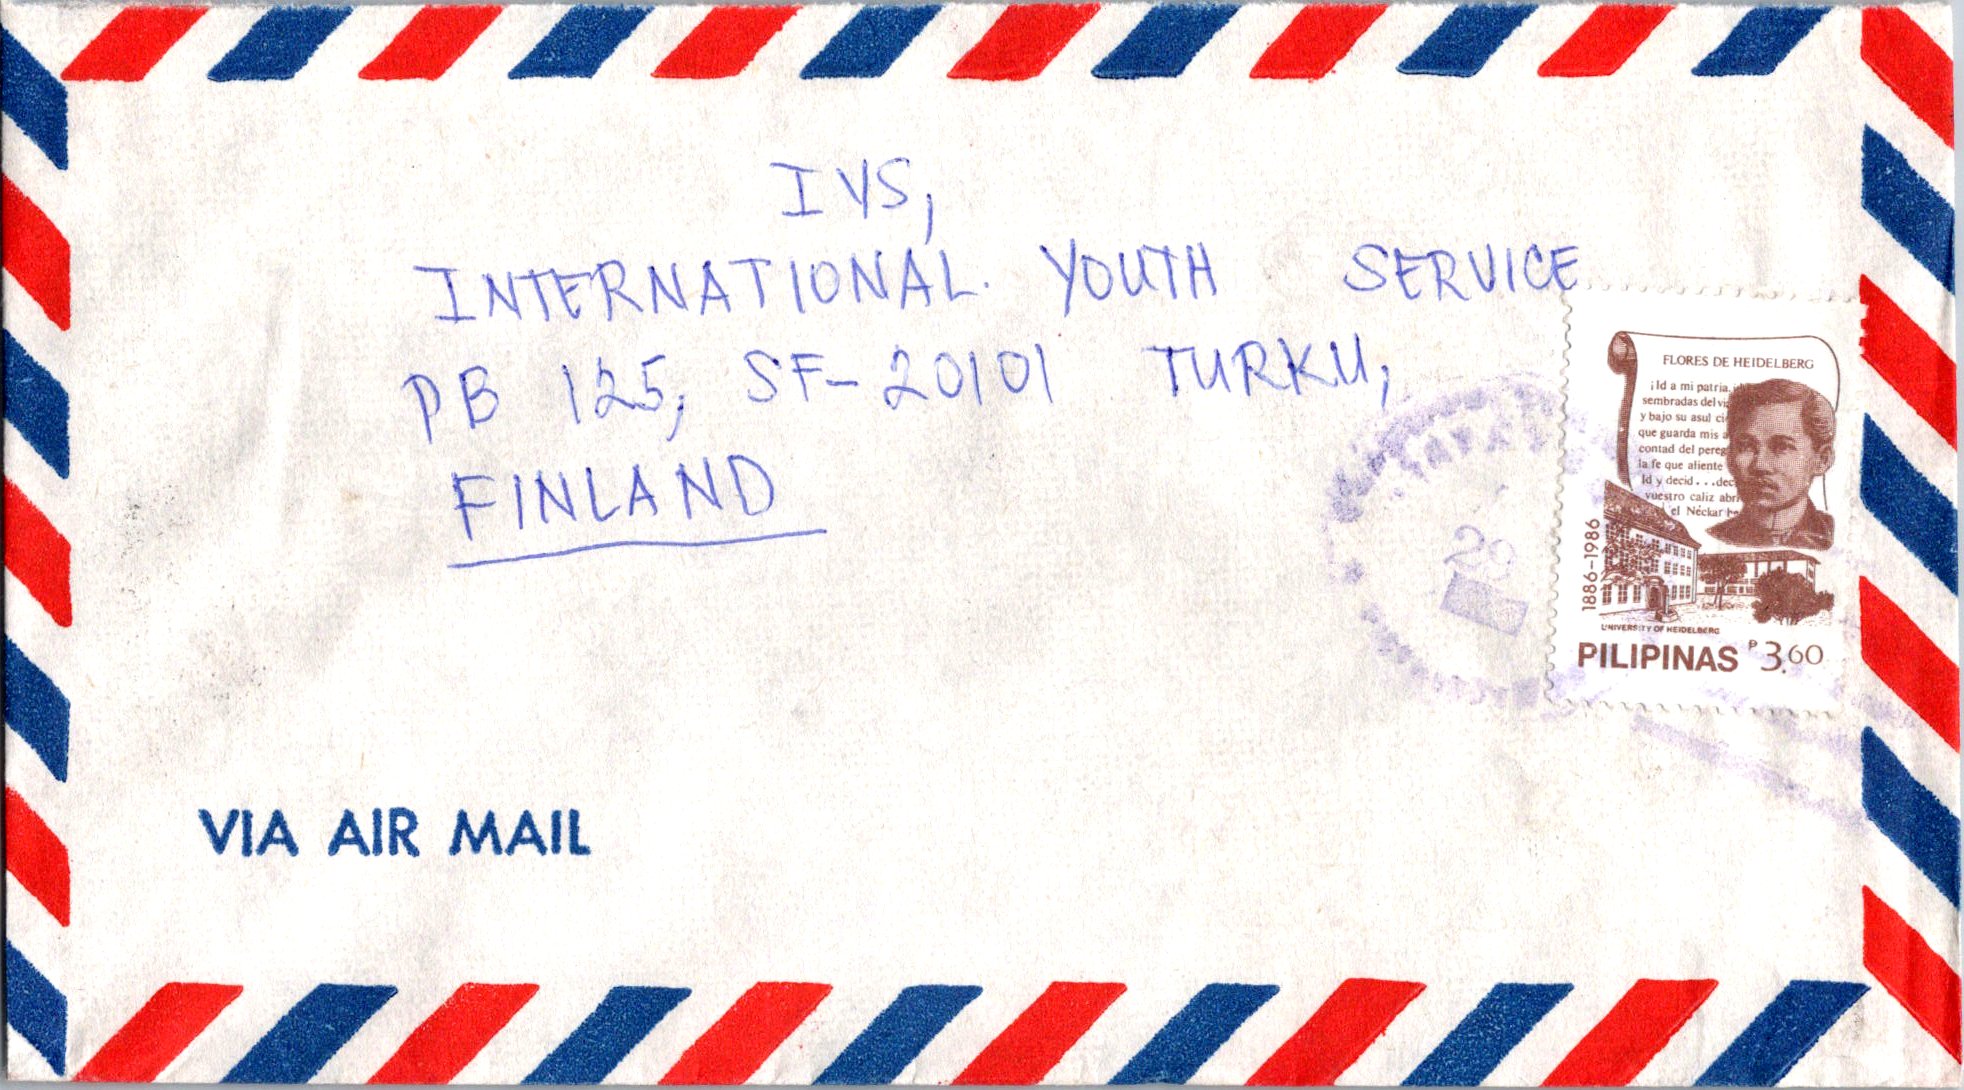 IYS,
INTERNATIONAL. YOUTH SERVICE
PB 125, SF-20101 TURKU,
FINLAND
FLORES DE HEIDELBERG
¡Id a mi patria,
sembradas del
y bajo su asul
que guarda mis
contad del
la fe que aliente
Id y decid...
vuestro caliz
el Néckar
29
1886-1986
UNIVERSITY OF HEIDELBERG
PILIPINAS P3.60
VIA AIR MAIL